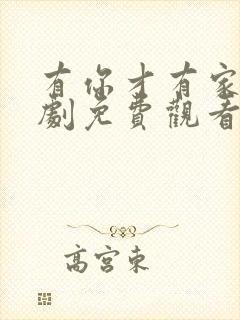 有你才有家
劇免費觀看
高宮東